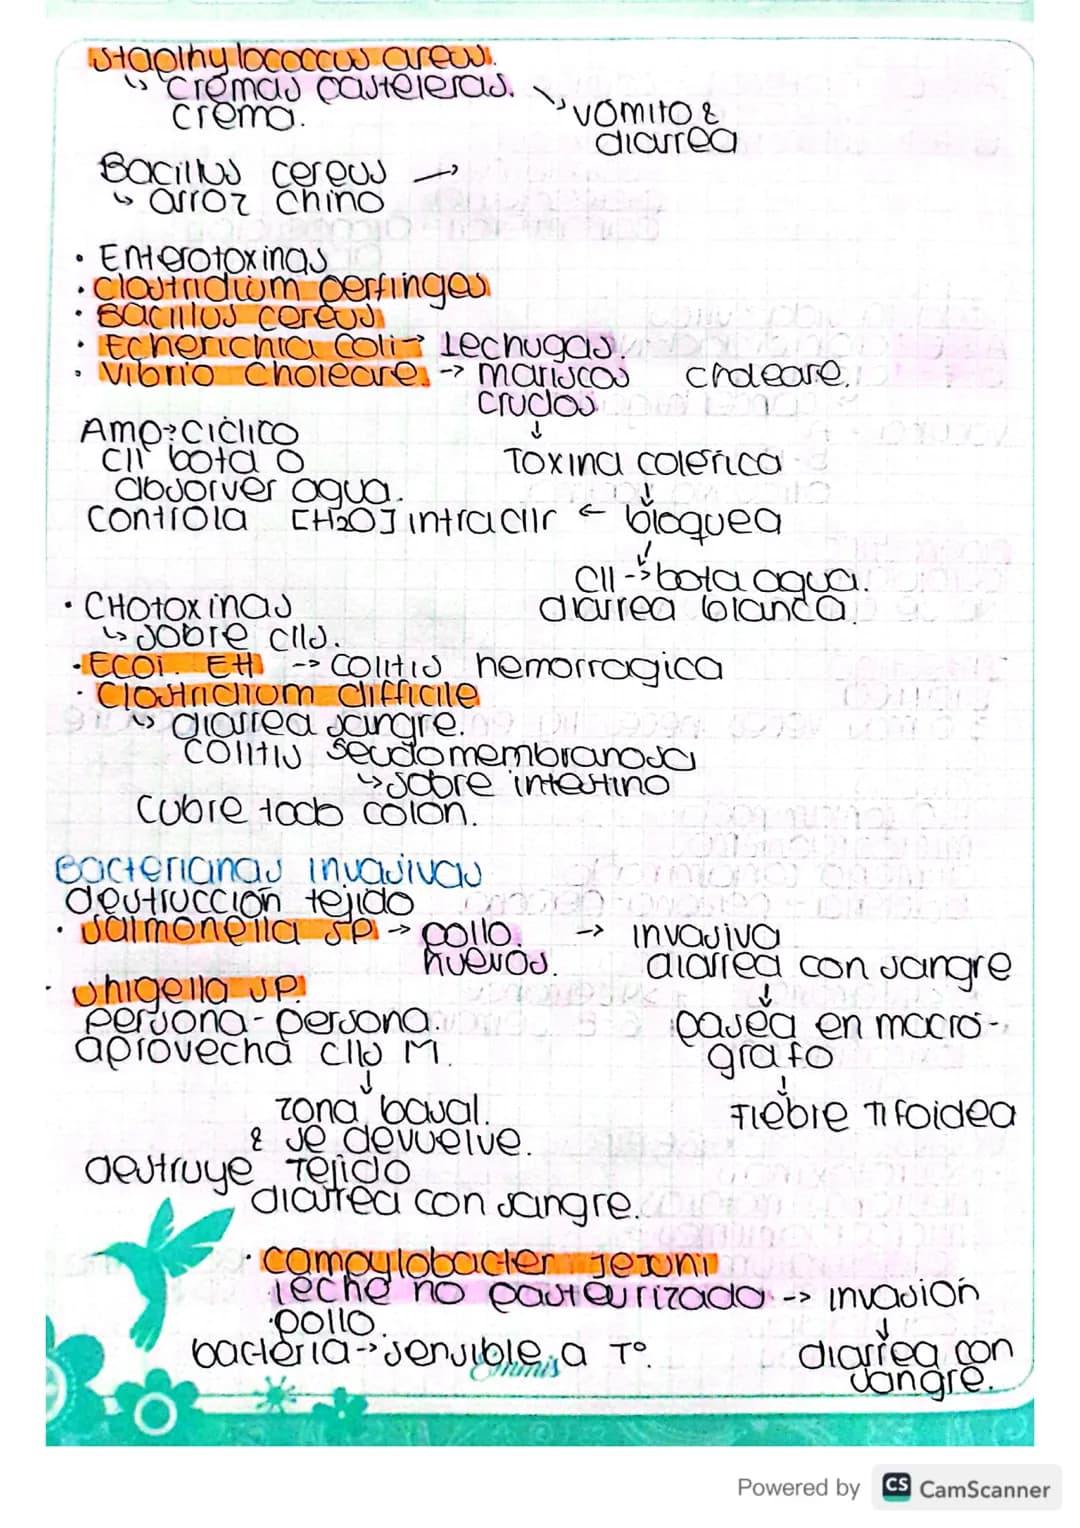 Staplhylococcus areus.
↳ cremas pasteleras.
crema.
↘ vomito &
diarrea
Bacillus cereus →
↳ arroz chino
• Enterotoxinas
• Clostridium perfinges
• Bacillus cereus
• Echerichia coli → lechugas.
• Vibrio Choleare. → mariscos choleare.
crudos
↓
Amp: ciclico
cll bota o
absorver agua.
Toxina colerica
↓
Controla [H2O] intracllr ← bloquea
↓
Cll → bota agua.
diarrea blanca.
• CHotoxinas
↳ sobre clls.
• Ecoi. EH → colitis hemorragica
• Clostridium difficile
↳ diarrea sangre.
colitis seudomembranosa
↳ sobre intestino
cubre todo colon.
Bacterianas invasivas
destrucción tejido
• Salmonella SP → pollo. → invasiva
huevos. diarrea con sangre
↓
• Shigella SP.
persona - persona. pasea en macro-
aprovecha clls M. grafo
↓ ↓
zona basal. Fiebre Tifoidea
& se devuelve.
destruye Tejido
diarrea con sangre.
• Campylobacter Jejuni
leche no pasteurizado → invasión
• pollo. ↓
bacteria → sensible a T°. diarrea con
sangre.
Emmis
Powered by CS CamScanner